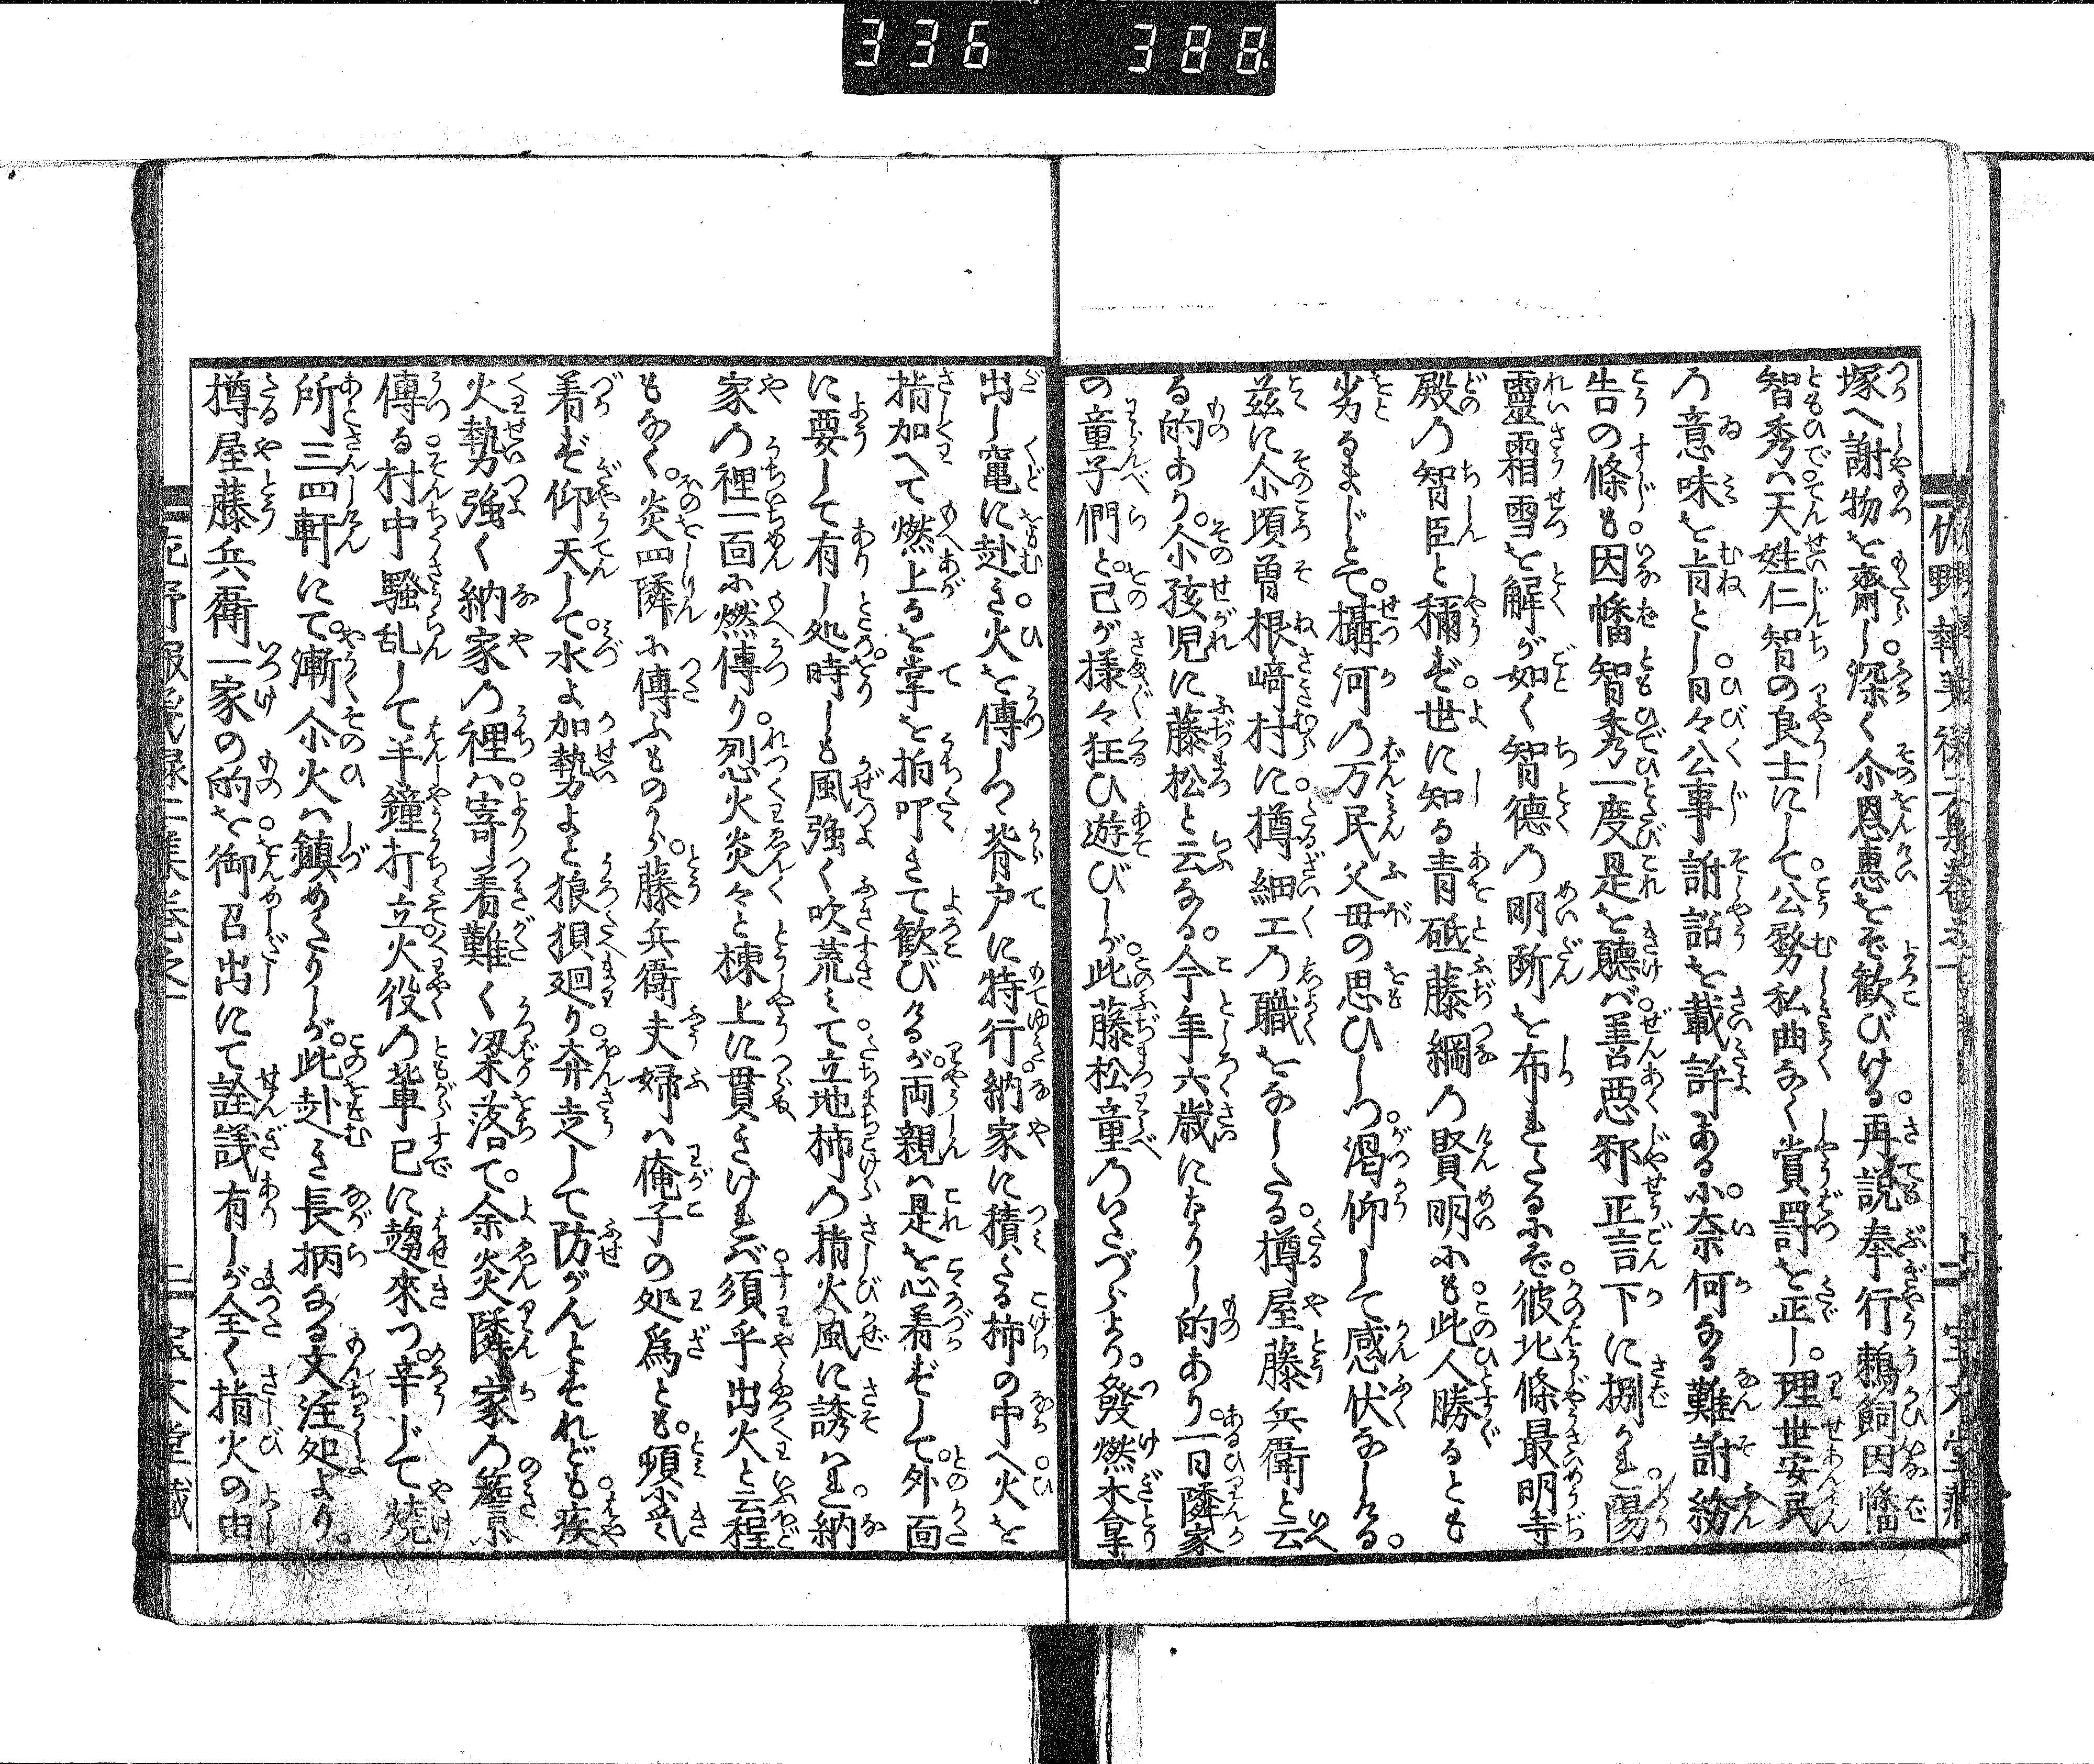 336 388
塚へ謝物を齎し深く尒恩惠をぞ歓びける。再説奉行鵜飼因幡
智秀ハ天姓仁智の良士にして公務私曲なく賞罰を正し。理世安民
の意味を肯とし日々公事訴詔を載許あるに。奈何なる難訴紛
告の條も。因幡智秀一度是を聽バ。善悪邪正言下に捌かれ。陽
靈霜雪を解が如く智徳の明断を布れたるにぞ。彼北條最明寺
殿の智臣と稱ぜ世に知る青砥藤綱の賢明にも。此人勝るとも
劣るまじとて。攝河の万民父母の思ひしつ。渇仰して感伏なしける。
茲に尒頃曽根﨑村に。樽細工の職をなしたる。樽屋藤兵衛と云
る的あり。尒孩児に藤松と云なる。今年六歳になりし的あり。一日隣家
の童子們と。己が様々狂ひ遊びしが。此藤松童のいたづらより。發燃木拿
出し竃に赴き。火を傳しつ背戸に特行。納家に積たる柿の中へ火を
指加へて燃上るを掌を拍叩きて歓びけるが。両親ハ是を心着ずして。外面
に要して有し処。時しも風強く吹荒みて。立地柿の指火風に誘ハれ。納
家の裡一面に燃傳り。烈火炎々と棟上に貫きけれバ。須乎出火と云程
もなく。炎四隣に傳ふものから。藤兵衛夫婦ハ俺子の処爲とも。頓に氣
着ず仰天して。水よ加勢よと狼狽廻り。奔走して防がんとすれども。疾
火勢強く納家の裡ハ。寄着難く梁落て。余炎隣家の簷に
傳る。村中騒乱して半鐘打立。火役の輩已に趨來つ。辛じて燒
所三四軒にて。漸尒火ハ鎮めたりしが。此赴き長柄なる文注処より。
樽屋藤兵衛一家の的を。御召出にて詮議有しが。全く指火の由